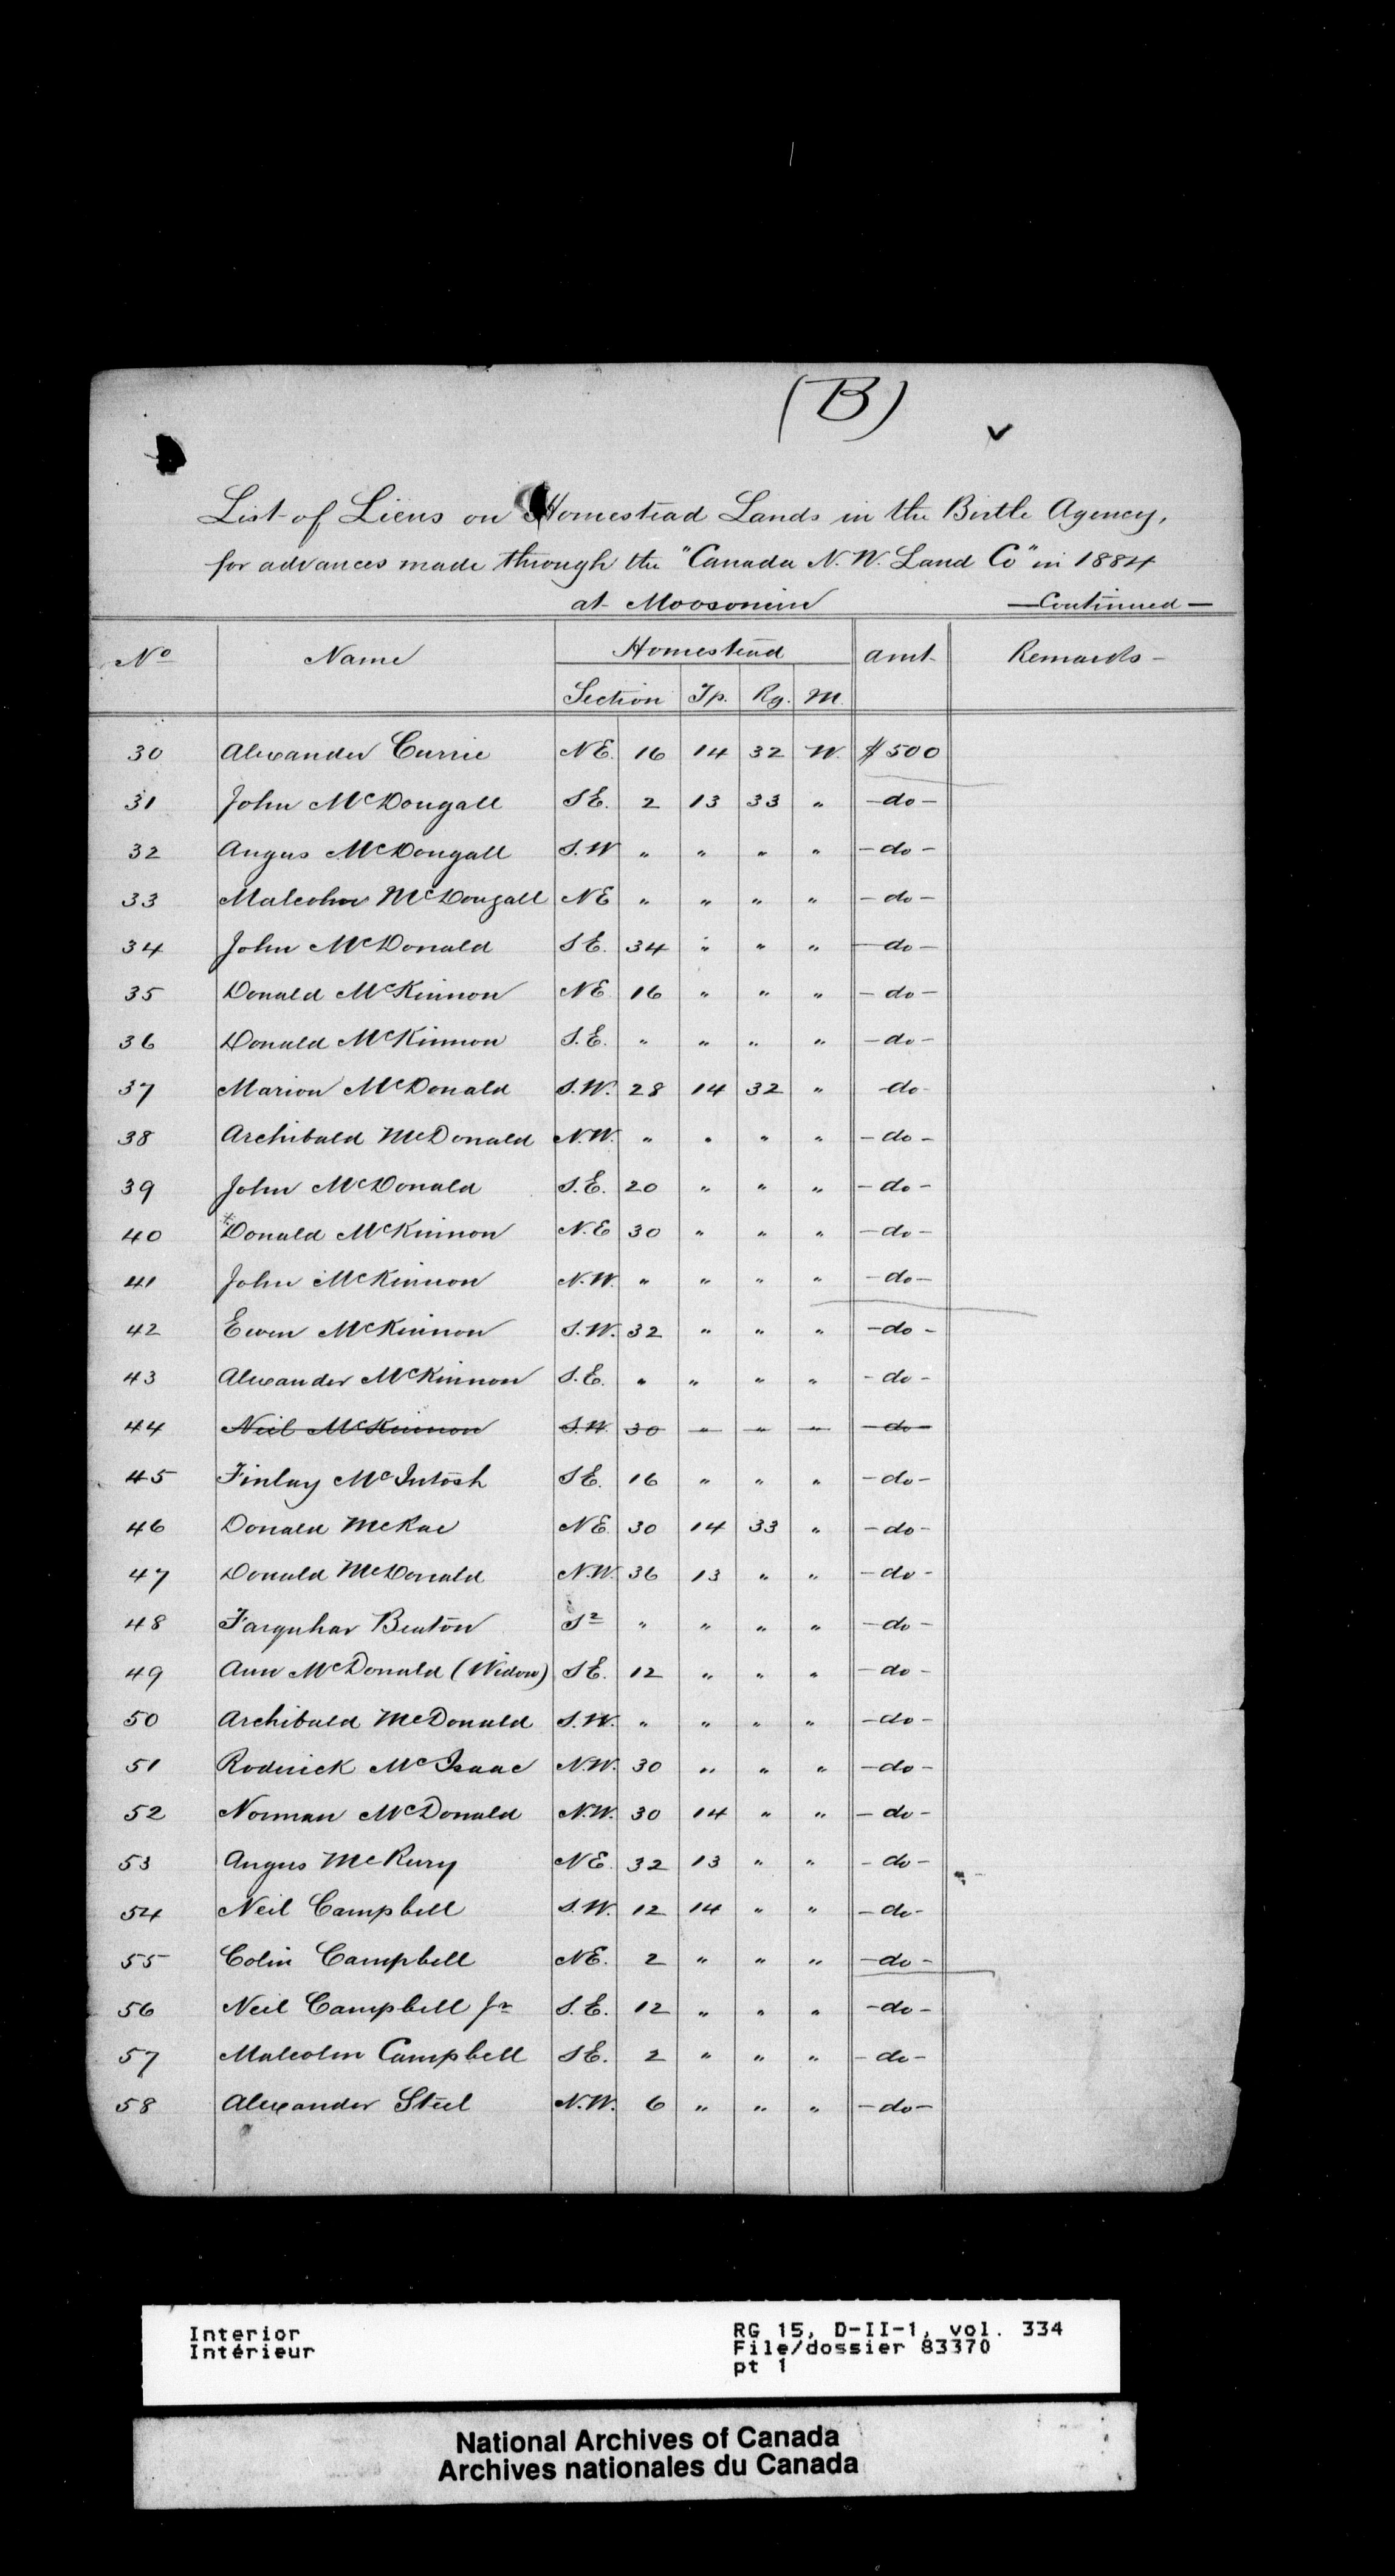 (B)
✓
List of Liens on Homestead Lands in the Birtle Agency,
for advances made through the "Canada N. W. Land Co" in 1884
at Moosomin — Continued —
No Name Homestead amt. Remarks —
Section Tp. Rg. M.
30 Alexander Currie NE. 16 14 32 W. $500
31 John McDougall SE. 2 13 33 " — do —
32 Angus McDougall S.W " " " " — do —
33 Malcolm McDougall NE " " " " — do —
34 John McDonald SE. 34 " " " — do —
35 Donald McKinnon NE 16 " " " — do —
36 Donald McKinnon S.E. " " " " — do —
37 Marion McDonald S.W. 28 14 32 " do
38 Archibald McDonald N.W. " " " " — do —
39 John McDonald S.E. 20 " " " — do —
40 Donald McKinnon N.E 30 " " " — do —
41 John McKinnon N.W. " " " " — do —
42 Ewen McKinnon S.W. 32 " " " — do —
43 Alexander McKinnon S.E. " " " " — do —
44 Neil McKinnon S.W. 30 " " " — do —
45 Finlay McIntosh SE. 16 " " " — do —
46 Donald McRae NE. 30 14 33 " — do —
47 Donald McDonald N.W. 36 13 " " — do —
48 Farquhar Beaton S2 " " " " — do —
49 Ann McDonald (Widow) SE. 12 " " " — do —
50 Archibald McDonald S.W. " " " " — do —
51 Roderick McIsaac N.W. 30 " " " — do —
52 Norman McDonald N.W. 30 14 " " — do —
53 Angus McRury NE. 32 13 " " — do —
54 Neil Campbell S.W. 12 14 " " — do —
55 Colin Campbell NE. 2 " " " — do —
56 Neil Campbell Jr S.E. 12 " " " — do —
57 Malcolm Campbell SE. 2 " " " — do —
58 Alexander Steel N.W. 6 " " " — do —
Interior RG 15, D-II-1, vol. 334
Intérieur File/dossier 83370
pt 1
National Archives of Canada
Archives nationales du Canada